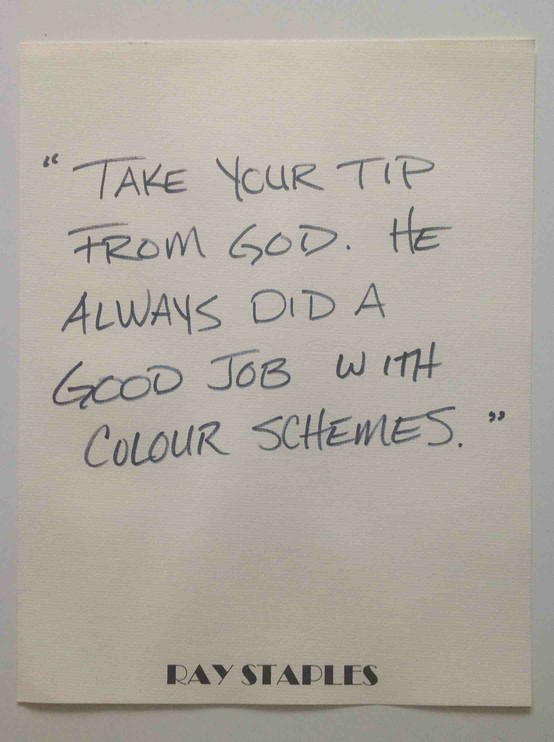 “TAKE YOUR TIP
FROM GOD. HE
ALWAYS DID A
GOOD JOB WITH
COLOUR SCHEMES.”
RAY STAPLES